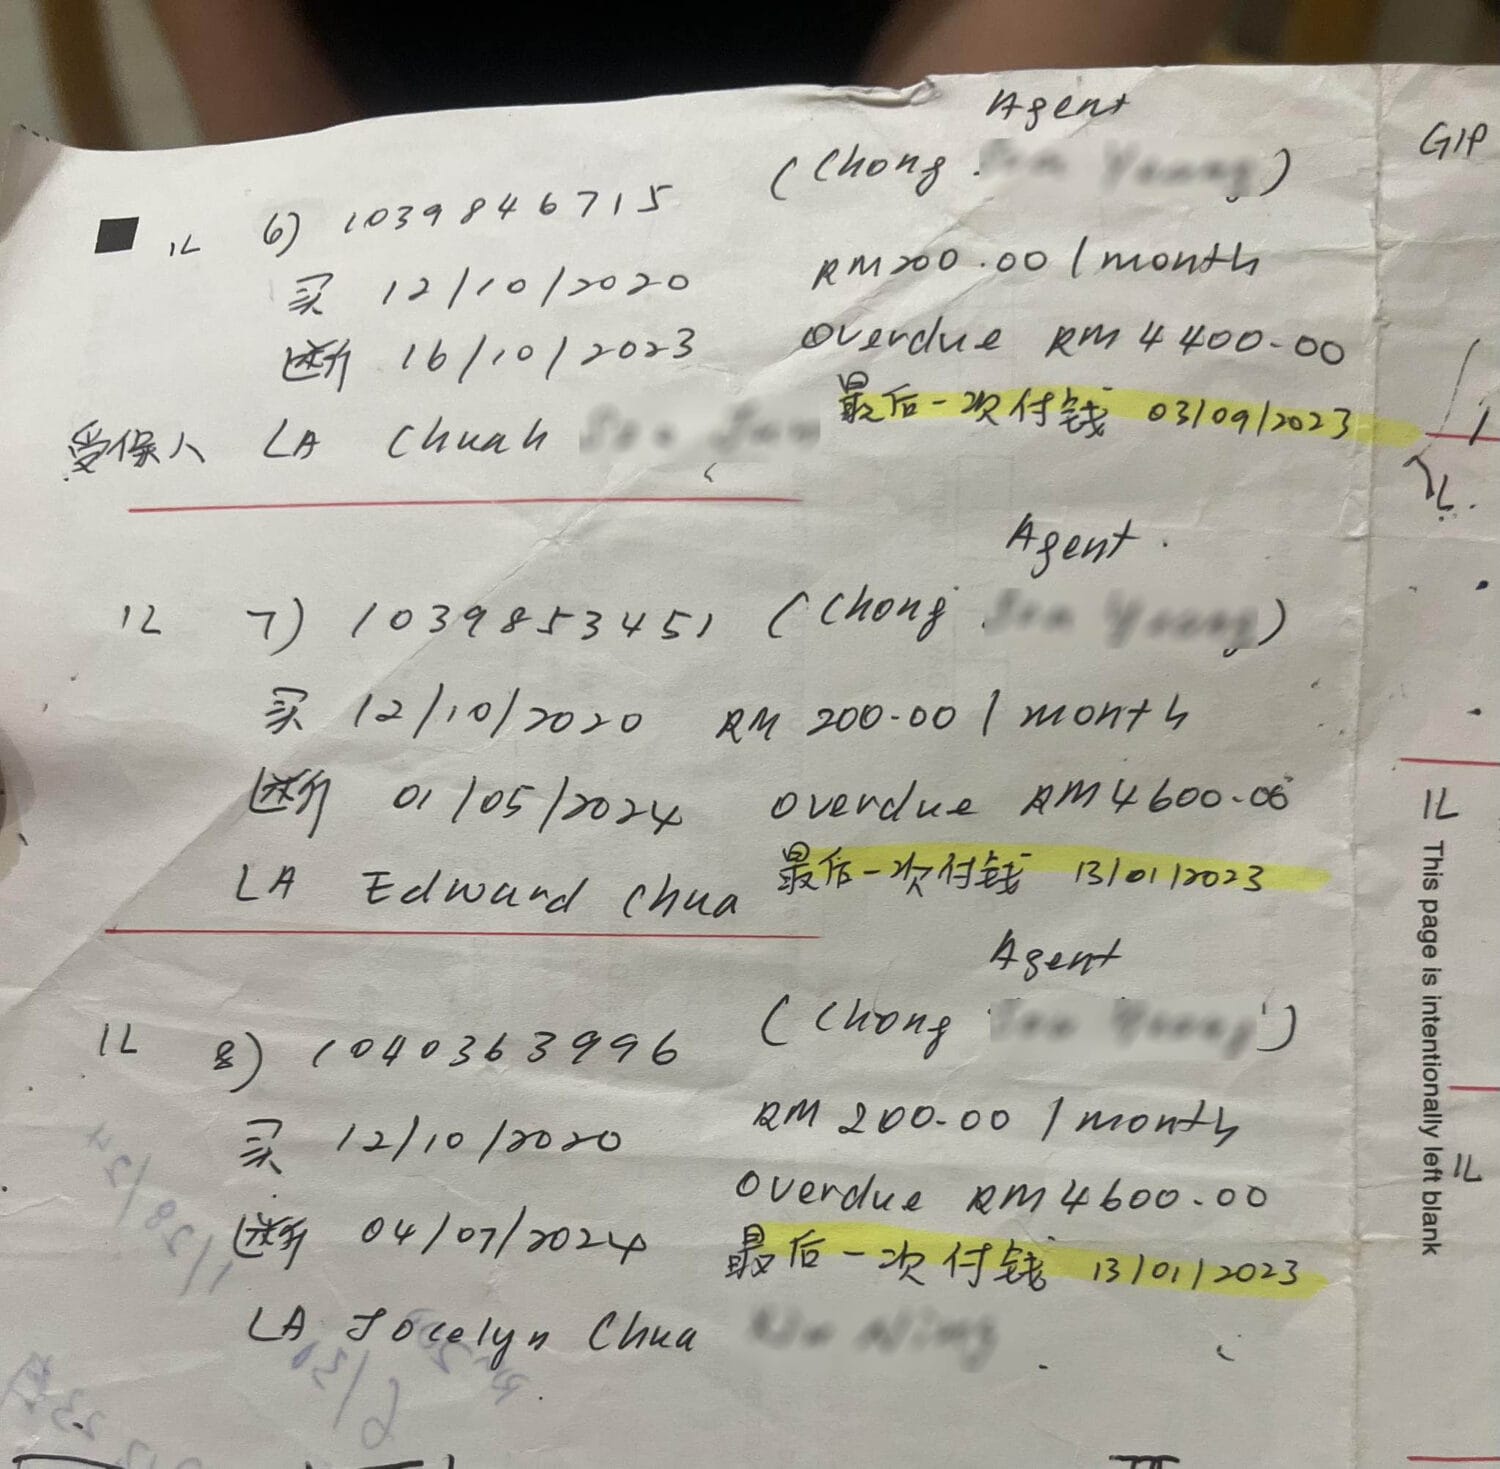 Agent
(Chong
IL 6) 1039846715
RM200.00 / month
买 12/10/2020
overdue RM4400.00
断 16/10/2023
最后一次付钱 03/09/2023
受保人 LA Chuah
Agent
IL 7) 1039853451 (Chong
买 12/10/2020 RM 200.00 / month
断 01/05/2024 overdue RM4600.00
最后一次付钱 13/01/2023
LA Edward Chua
Agent
(Chong
IL 8) 1040363996
RM 200.00 / month
买 12/10/2020
overdue RM4600.00
断 04/07/2024
最后一次付钱 13/01/2023
LA Jocelyn Chua
GIP
IL
IL
This page is intentionally left blank
IL